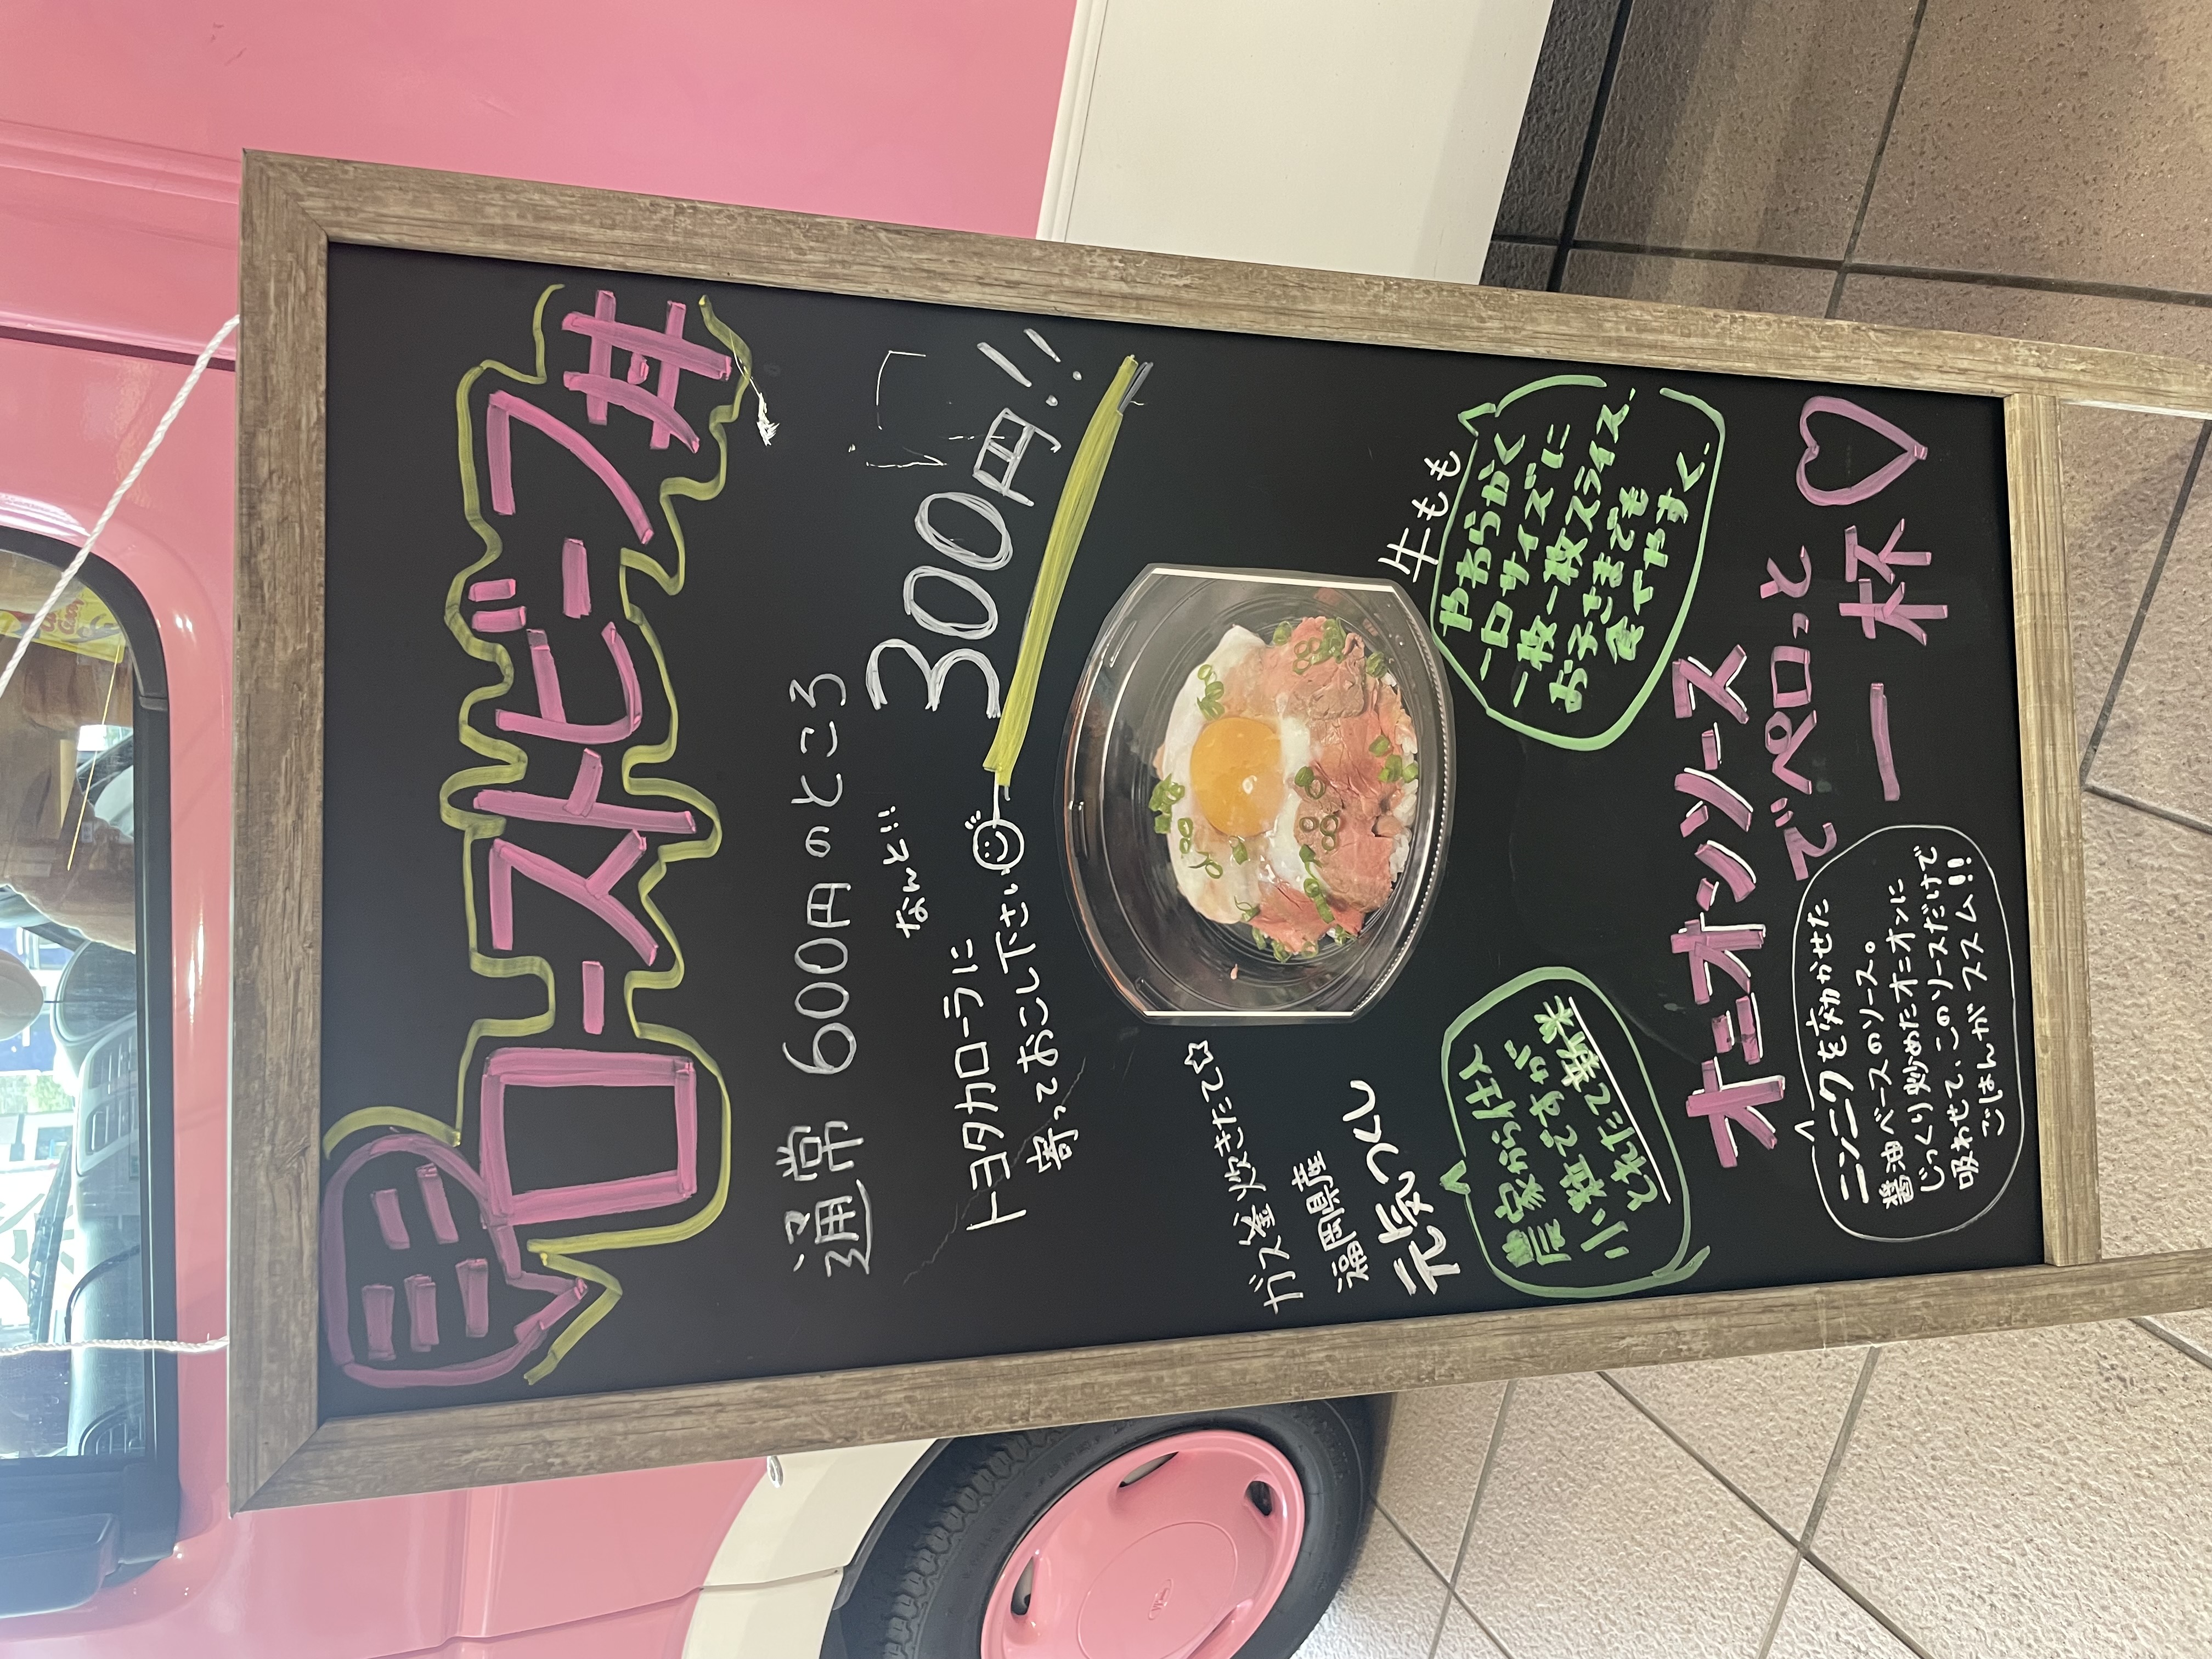 ローストビーフ丼
通常 600円のところ
なんと!!
300円!!
トヨタカローラに
寄っておこし下さい
ガス釜炊きたて☆
福岡県産
元気つくし
農家から仕入
小粒ですが
とれたて新米
牛もも
やわらかく
一口サイズに
一枚一枚スライス、
お子さまでも
食べやすく、
オニオンソース
でペロっと
一杯♡
ニンニクを効かせた
醤油ベースのソース。
じっくり炒めたオニオンに
吸わせて、このソースだけで
ごはんがススム!!